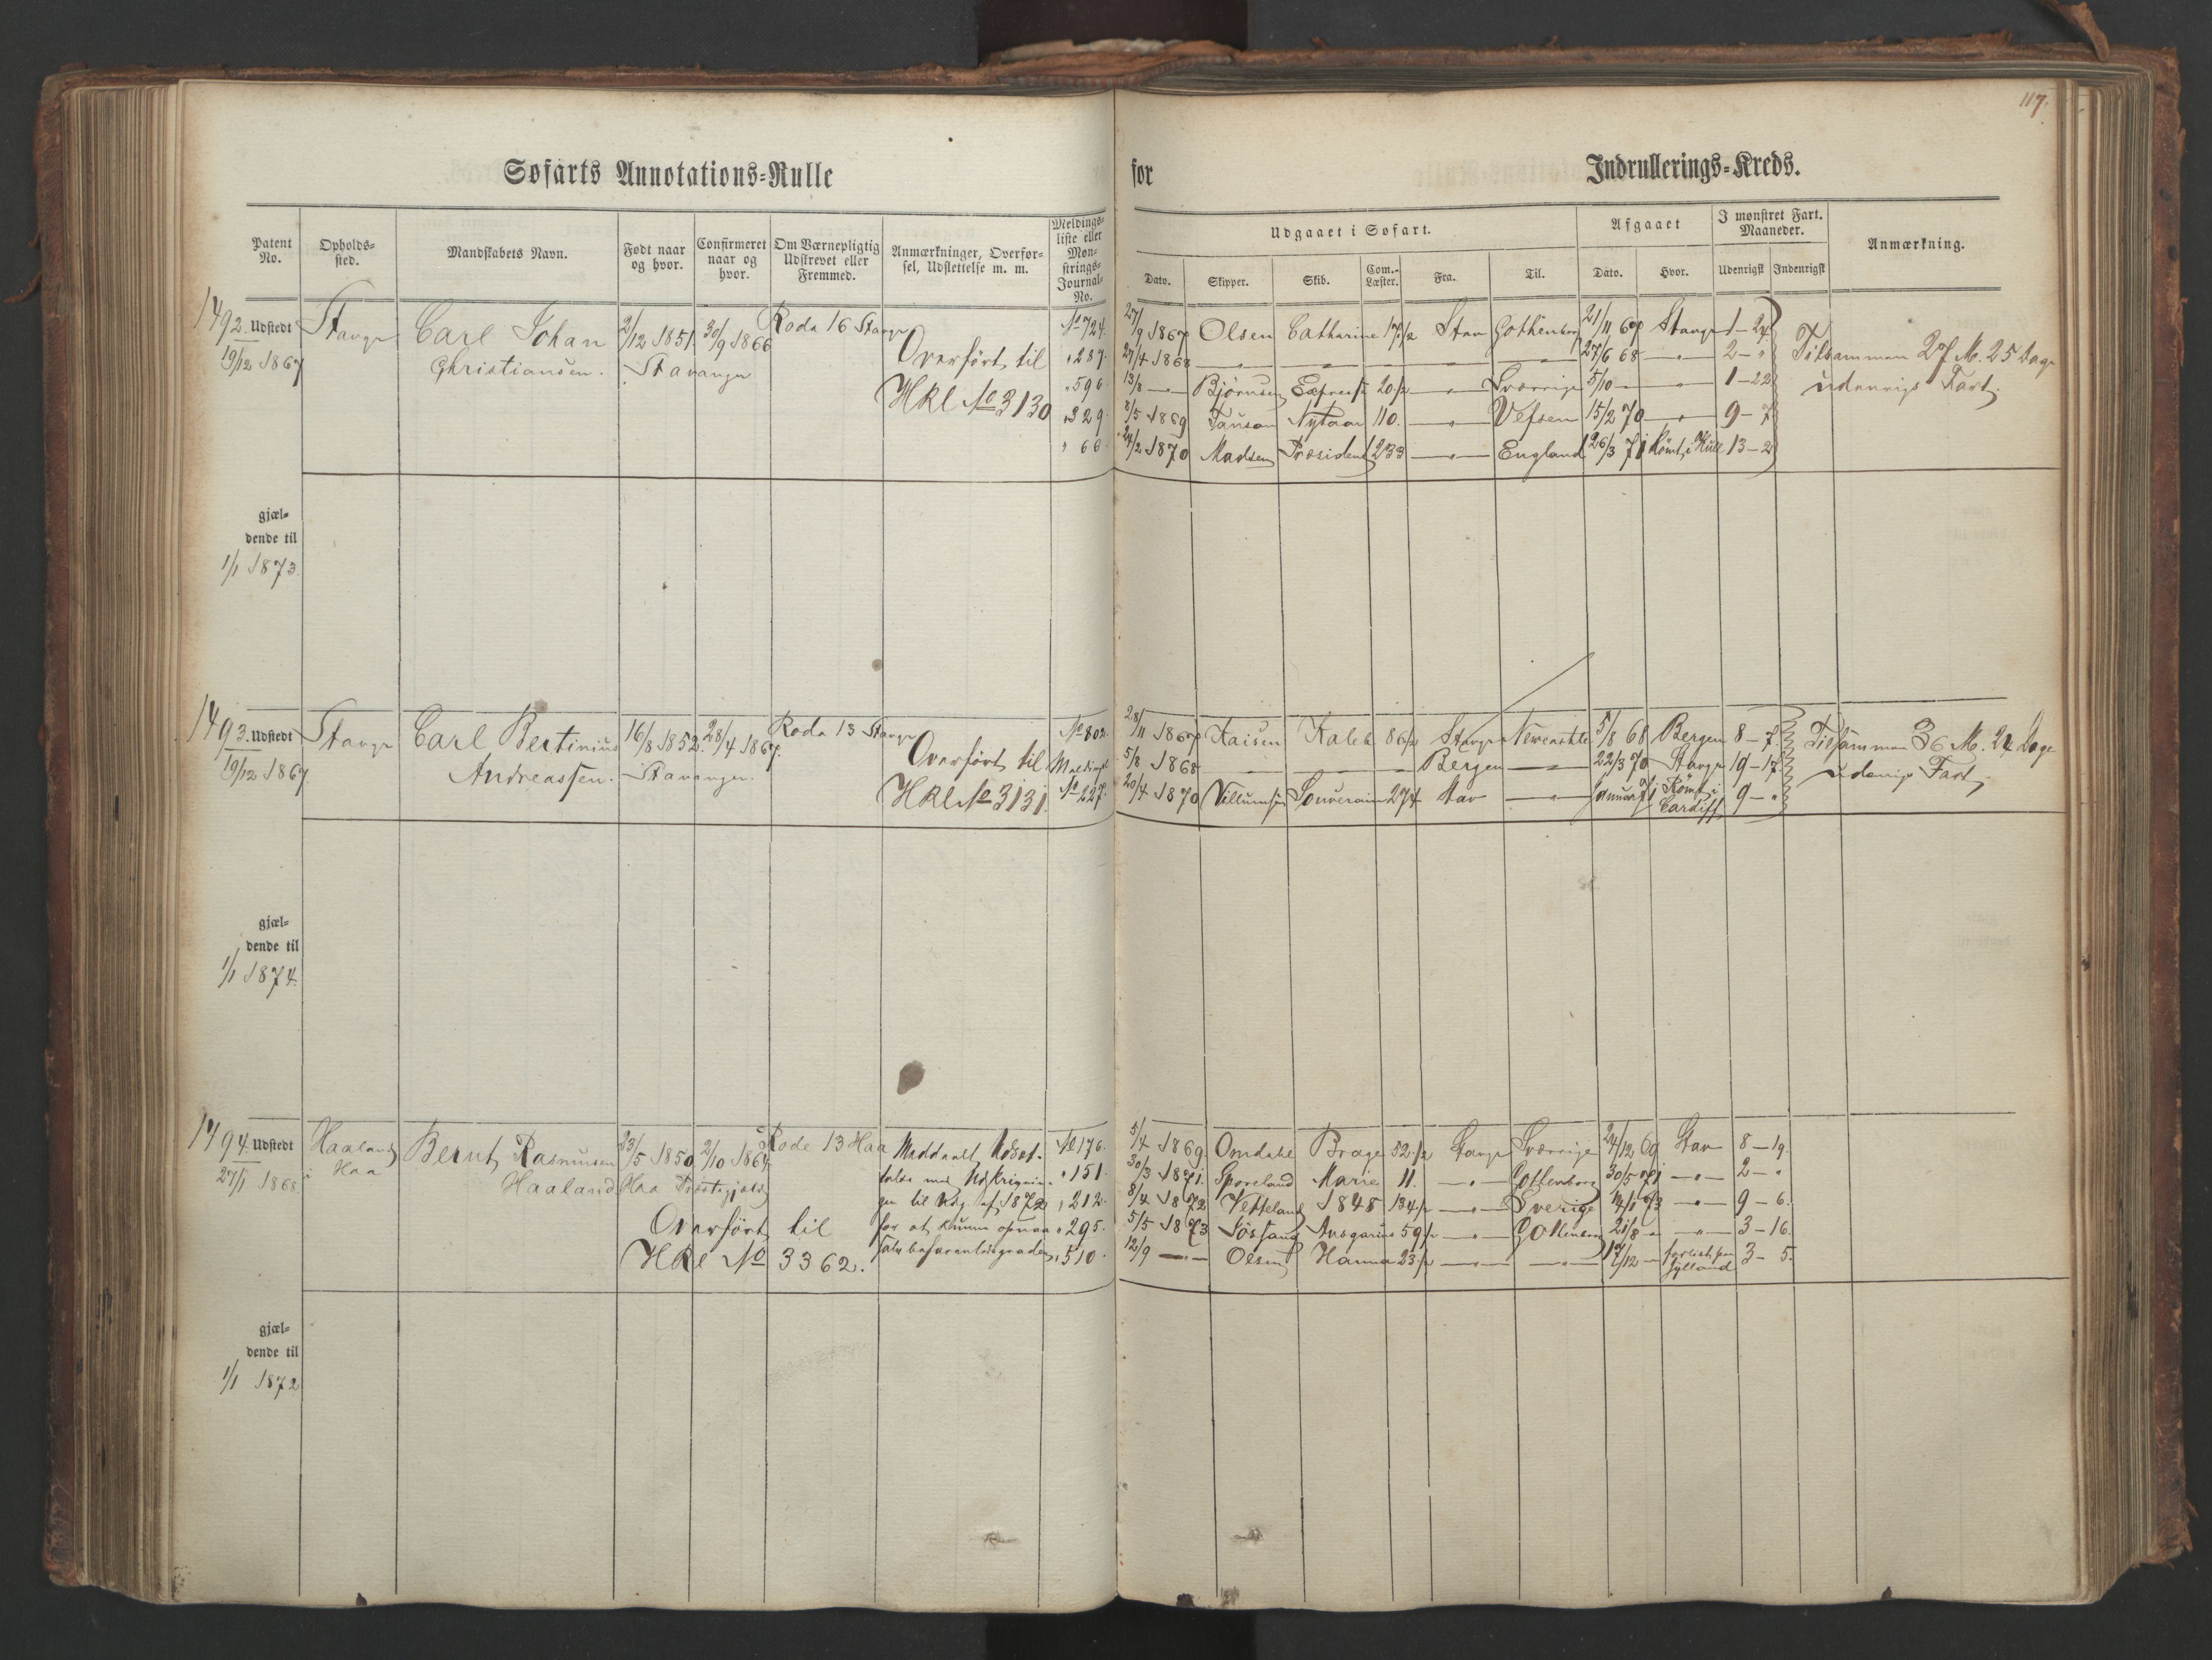 117.
Søfarts Annotations-Rulle for Indrullerings-Kreds.
Patent No.
Opholds-sted.
Mandskabets Navn.
Født naar og hvor.
Confirmeret naar og hvor.
Om Værnepligtig Udskrevet eller Fremmed.
Anmærkninger, Overførsel, Udslettelse m. m.
Meldings-liste eller Mønstrings-Journal-No.
Udgaaet i Søfart.
Afgaaet
I mønstret Fart. Maaneder.
Anmærkning.
Dato. Skipper. Skib. Com.-Læster. Fra. Til. Dato. Hvor. Udenrigsk Indenrigsk
1492. Udstedt
19/12 1867
Stavgr
Carl Johan
Christiansen.
2/12 1851
Stavanger
30/9 1866
Rode 16 Stavgr
Overført til
HRl No 3130
No 724.
" 287.
" 596.
" 329.
" 66.
27/9 1867 Olsen Catharine 17 1/2 Stav Gothenborg 21/11 67 Stavgr 1-24
27/4 1868 — — — — — 27/6 68 —"— 2-"
13/8 —"— Bjørnsen Express 20 1/2 —"— Sverrige 5/10 —"— —"— 1-22
8/5 1869 Nytaar 110. —"— Vefsen 15/2 70 —"— 9-7
24/2 1870 Madsen Præsident 233 —"— England 26/3 71 Rømt i Hull 13-2
Tilsammen 27 M. 25 Dage
udenrigs Fart.
gjæl-
dende til
1/1 1873.
1493. Udstedt
19/12 1867
Stavgr
Carl Bertinius
Andreassen.
16/8 1852.
Stavanger.
28/4 1867.
Rode 13 Stavgr
Overført til
HRl No 3131.
No 802.
No 227.
28/11 1867 Kaisen Kaleb 86 1/2 Stavgr Newcastle 5/8 68 Bergen 8-7.
5/8 1868 — — — Bergen —"— 22/3 70 Stavgr 19-17.
20/4 1870 Villumsen Souverain 274 Stav —"— Januar 71 Rømt i Cardiff 9-"
Tilsammen 36 M. 24 Dage
udenrigs Fart.
gjæl-
dende til
1/1 1874.
1494. Udstedt
27/1 1868
Haaland
i Haa
Bernt Rasmusen
Haaland
23/5 1850
Haa Præstegjæld
2/10 1864
Rode 13 Haa
Overført til
HRl No 3362.
Meddeelt Udsæt-
telse med Udskrivnin-
gen til Udg. af 1872
for at kunne opnaa
befarenhedsgraden
No 176.
" 151.
" 212.
" 295.
" 510.
5/4 1869 Omdahl Brage 52 1/2 Stavgr Sverrige 24/12 69 Stav 8-19.
30/3 1871. Sporeland Marie 11. —"— Gottenborg 30/5 71 —"— 2-"
8/4 1872 Vetteland 1848 134 1/2 —"— Sverige 14/1 73 —"— 9-6.
5/5 1873 Jøssang Ansgarius 59 1/2 —"— Gottenborg 21/8 " —"— 3-16.
12/9 —"— Olsen Hanna 23 1/2 —"— —"— 17/12 — Jylland 3-5.
gjæl-
dende til
1/1 1872